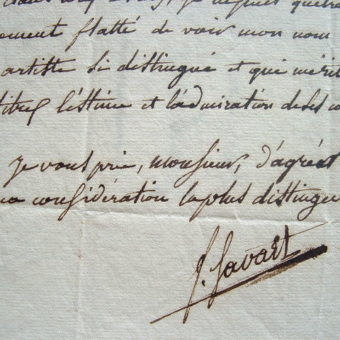 je depuis
ement flatté de voir mon nom
artiste si distingué et qui mérit
titres l'estime et l'admiration de ses
Je vous prie, monsieur, d'agrée
considération la plus distingué
J. Savart